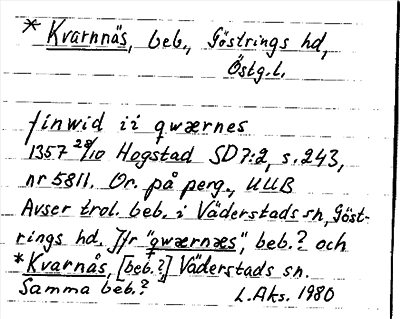 * Kvarnnäs, beb., Göstrings hd,
Östg.l.
finwid ii qwærnes
1357 28/10 Hogstad SD 7:2, s. 243,
nr 5811. Or. på perg., UUB
Avser trol. beb. i Väderstads sn, Göst-
rings hd. Jfr "qwærnæs", beb.? och
* Kvarnås, [beb.?] Väderstads sn.
Samma beb.?
L.Aks. 1980